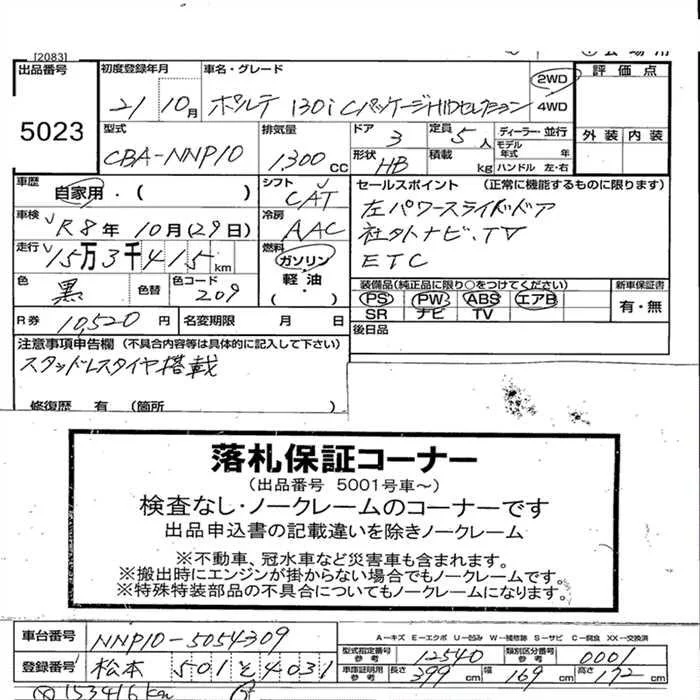 [2083]
出品番号
5023
初度登録年月
21 10月
車名・グレード
ポルテ 130i CパッケージHIDセレクション
2WD
4WD
評価点
外装 内装
型式
CBA-NNP10
排気量
1,300 CC
ドア
3
形状
HB
定員
5人
積載
kg
ディーラー・並行
モデル年式 年
ハンドル 左・右
車歴
自家用・( )
シフト
CAT
セールスポイント (正常に機能するものに限ります)
左パワースライドドア
社外ナビ、TV
ETC
車検
R8年 10月(29日)
冷房
AAC
走行
15万3千415km
燃料
ガソリン
軽油
( )
色
黒
色替
色コード
209
装備品(純正品に限り○をつけてください)
PS PW ABS エアB
SR ナビ TV
新車保証書
有・無
R券 10,520円
名変期限 月 日
後日品
注意事項申告欄 (不具合内容等は具体的に記入して下さい)
スタッドレスタイヤ搭載
修復歴 有 (箇所 )
落札保証コーナー
(出品番号 5001号車~)
検査なし・ノークレームのコーナーです
出品申込書の記載違いを除きノークレーム
※不動車、冠水車など災害車も含まれます。
※搬出時にエンジンが掛からない場合でもノークレームです。
※特殊特装部品の不具合についてもノークレームになります。
車台番号
NNP10-5054309
A-キズ E-エクボ U-凹み W-補修跡 S-サビ C-腐食 XX-交換済
型式指定番号
参考
12540
類別区分番号
参考
0001
登録番号
松本 501 そ 4031
車庫証明用
参考
長さ 399cm 幅 169cm 高さ 172cm
153416km